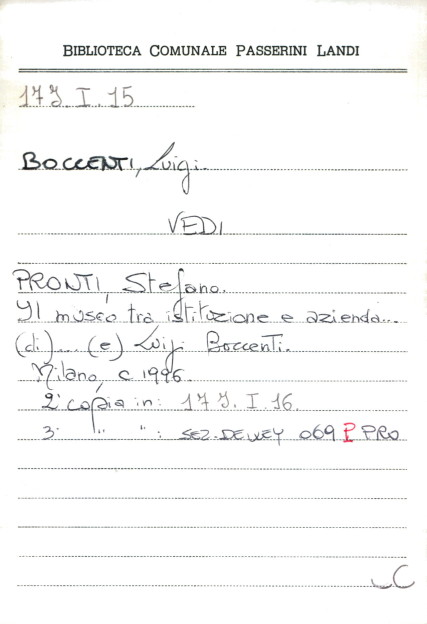 BIBLIOTECA COMUNALE PASSERINI LANDI
17J.I.15
BOCCENTI, Luigi.
VEDI
PRONTI, Stefano.
Il museo tra istituzione e azienda...
(di)... (e) Luigi Boccenti.
Milano, c. 1996.
2ª copia in: 17J.I.16.
3ª " " : SEZ. DEWEY 069 P PRO